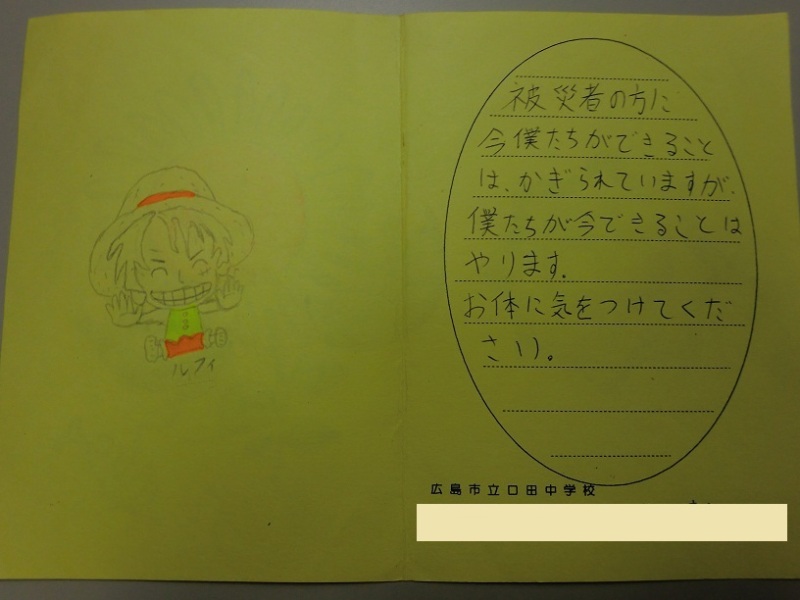 ルフィ
被災者の方に
今僕たちができること
は、かぎられていますが、
僕たちが今できることは
やります。
お体に気をつけてくだ
さい。
広島市立口田中学校